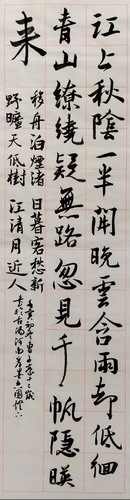 江上秋陰一半開晚雲含雨却低佪
青山繚繞疑無路忽見千帆隱暎
来
移舟泊煙渚日暮客愁新
野曠天低樹江清月近人